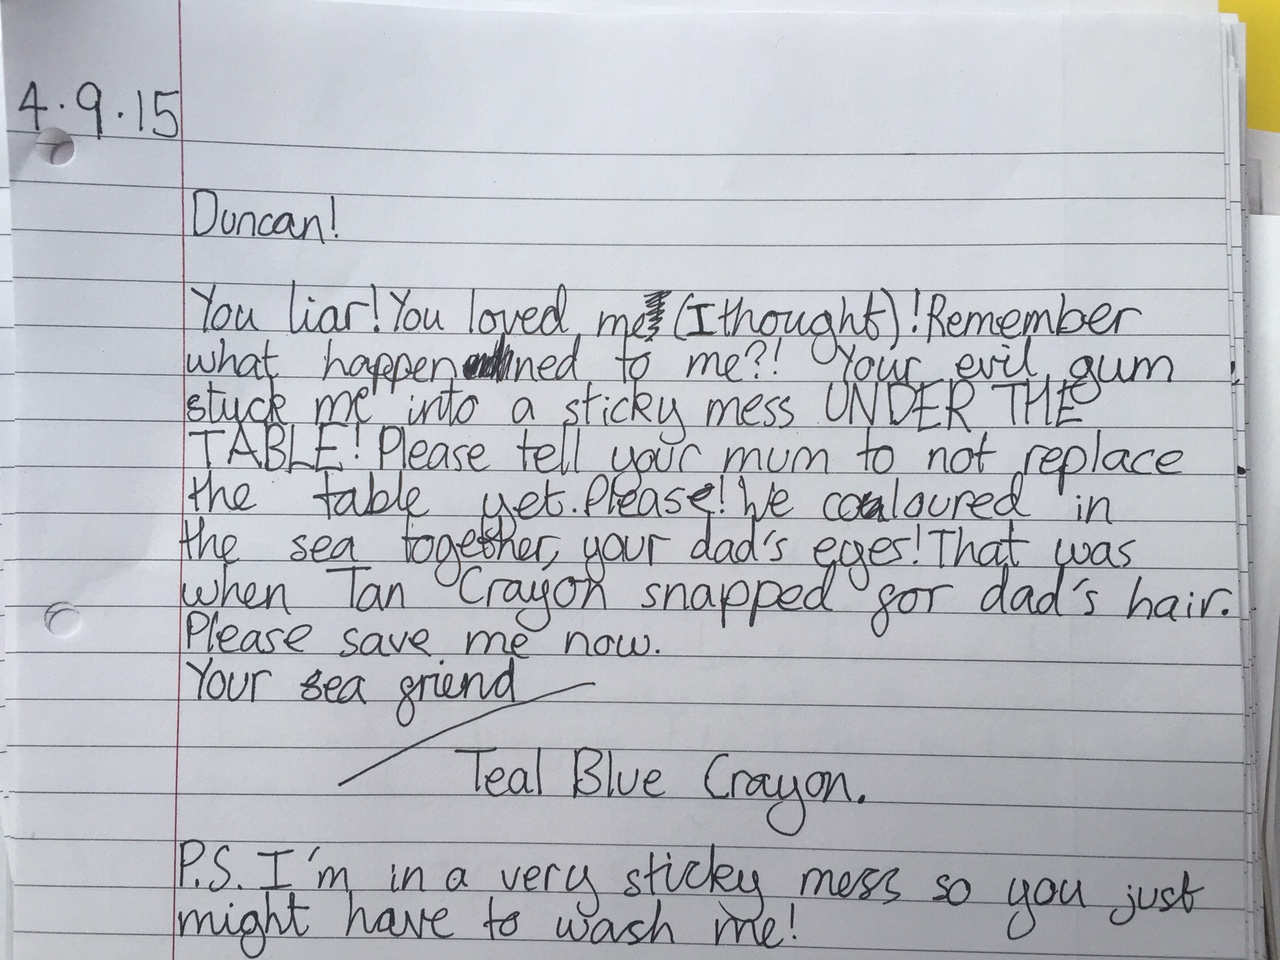 4.9.15
Duncan!
You liar! You loved me (I thought)! Remember
what happenned to me?! Your evil gum
stuck me into a sticky mess UNDER THE
TABLE! Please tell your mum to not replace
the table yet. Please! We coloured in
the sea together, your dad's eyes! That was
when Tan Crayon snapped for dad's hair.
Please save me now.
Your sea friend
Teal Blue Crayon.
P.S. I'm in a very sticky mess so you just
might have to wash me!